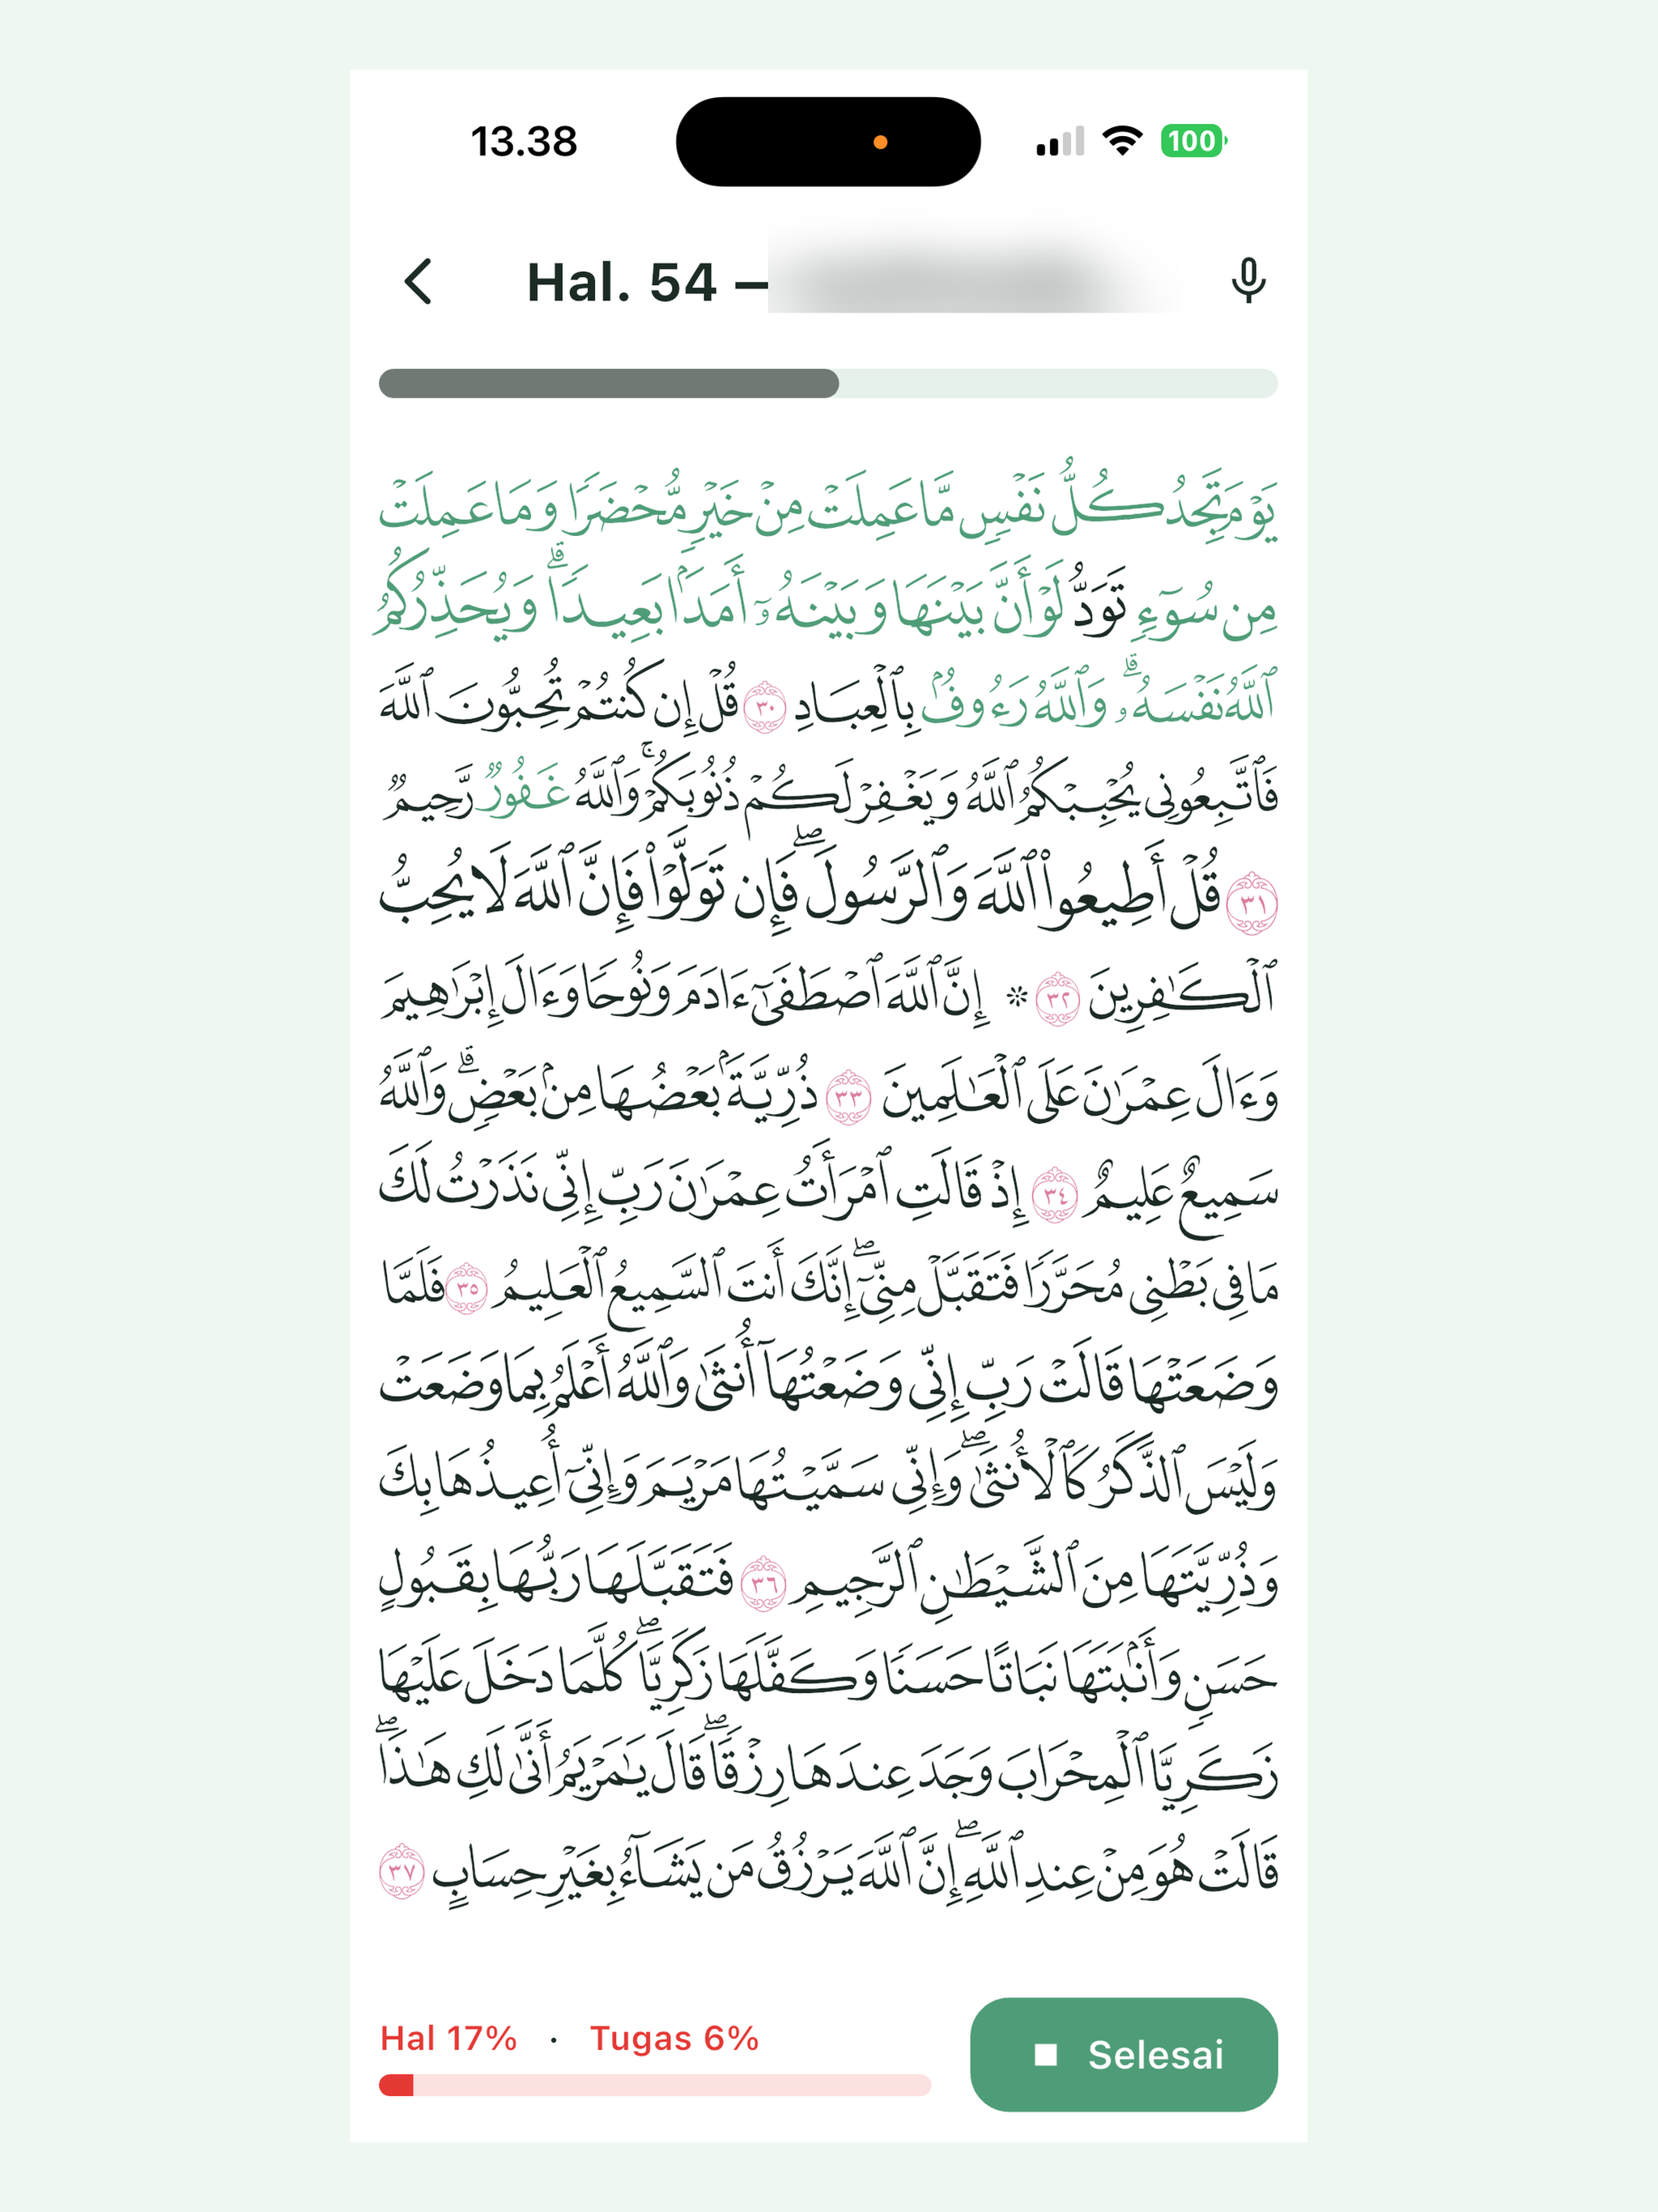 13.38
100
Hal. 54 —
يَوْمَ تَجِدُ كُلُّ نَفْسٍ مَّا عَمِلَتْ مِنْ خَيْرٍ مُّحْضَرًا وَمَا عَمِلَتْ
مِن سُوٓءٍ تَوَدُّ لَوْ أَنَّ بَيْنَهَا وَبَيْنَهُۥٓ أَمَدًۢا بَعِيدًا ۗ وَيُحَذِّرُكُمُ
ٱللَّهُ نَفْسَهُۥ ۗ وَٱللَّهُ رَءُوفٌۢ بِٱلْعِبَادِ ٣٠ قُلْ إِن كُنتُمْ تُحِبُّونَ ٱللَّهَ
فَٱتَّبِعُونِى يُحْبِبْكُمُ ٱللَّهُ وَيَغْفِرْ لَكُمْ ذُنُوبَكُمْ ۚ وَٱللَّهُ غَفُورٌ رَّحِيمٌ
٣١ قُلْ أَطِيعُوا۟ ٱللَّهَ وَٱلرَّسُولَ ۖ فَإِن تَوَلَّوْا۟ فَإِنَّ ٱللَّهَ لَا يُحِبُّ
ٱلْكَـٰفِرِينَ ٣٢ * إِنَّ ٱللَّهَ ٱصْطَفَىٰٓ ءَادَمَ وَنُوحًا وَءَالَ إِبْرَٰهِيمَ
وَءَالَ عِمْرَٰنَ عَلَى ٱلْعَـٰلَمِينَ ٣٣ ذُرِّيَّةًۢ بَعْضُهَا مِنۢ بَعْضٍ ۗ وَٱللَّهُ
سَمِيعٌ عَلِيمٌ ٣٤ إِذْ قَالَتِ ٱمْرَأَتُ عِمْرَٰنَ رَبِّ إِنِّى نَذَرْتُ لَكَ
مَا فِى بَطْنِى مُحَرَّرًا فَتَقَبَّلْ مِنِّىٓ ۖ إِنَّكَ أَنتَ ٱلسَّمِيعُ ٱلْعَلِيمُ ٣٥ فَلَمَّا
وَضَعَتْهَا قَالَتْ رَبِّ إِنِّى وَضَعْتُهَآ أُنثَىٰ وَٱللَّهُ أَعْلَمُ بِمَا وَضَعَتْ
وَلَيْسَ ٱلذَّكَرُ كَٱلْأُنثَىٰ ۖ وَإِنِّى سَمَّيْتُهَا مَرْيَمَ وَإِنِّىٓ أُعِيذُهَا بِكَ
وَذُرِّيَّتَهَا مِنَ ٱلشَّيْطَـٰنِ ٱلرَّجِيمِ ٣٦ فَتَقَبَّلَهَا رَبُّهَا بِقَبُولٍ
حَسَنٍ وَأَنۢبَتَهَا نَبَاتًا حَسَنًا وَكَفَّلَهَا زَكَرِيَّا ۖ كُلَّمَا دَخَلَ عَلَيْهَا
زَكَرِيَّا ٱلْمِحْرَابَ وَجَدَ عِندَهَا رِزْقًا ۖ قَالَ يَـٰمَرْيَمُ أَنَّىٰ لَكِ هَـٰذَا ۖ
قَالَتْ هُوَ مِنْ عِندِ ٱللَّهِ ۖ إِنَّ ٱللَّهَ يَرْزُقُ مَن يَشَآءُ بِغَيْرِ حِسَابٍ ٣٧
Hal 17% · Tugas 6%
Selesai